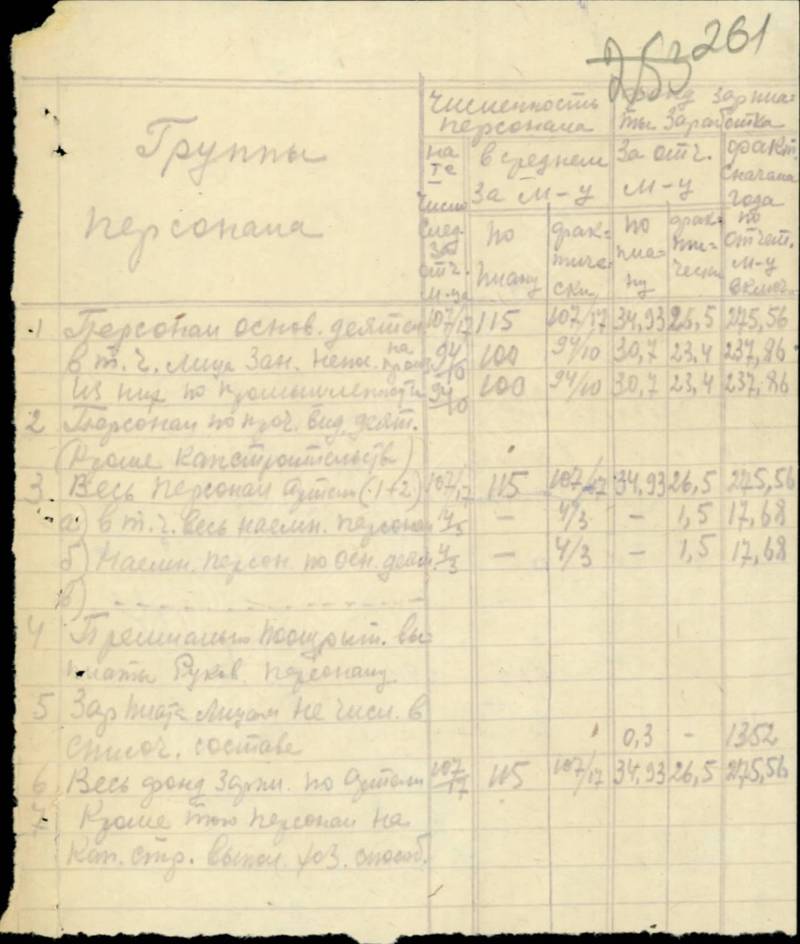 253 261
Группы
персонала
Численность
персонала
Фонд зарпла-
ты Заработка
на
1е
число
след.
за
отч.
м-ца
в среднем
За м-ц
по
плану
фак-
тиче-
ски
За отч.
м-ц
по
пла-
ну
фак-
ти-
чески
факт.
сначала
года
по
отчет.
м-ц
включ.
1 Персонал основ. деятел 107/17 115 107/17 34,93 26,5 275,56
в т.ч. лица зан. непос. на произ. 94/10 100 94/10 30,7 23,4 237,86
Из них по промышленности 94/10 100 94/10 30,7 23,4 237,86
2 Персонал по проч. вид. деят.
(Кроме капстроительств)
3 Весь персонал Артели (1+2) 107/17 115 107/17 34,93 26,5 275,56
а) в т.ч. весь наемн. персонал 4/3 — 4/3 — 1,5 17,68
б) Наемн. персон. по осн. деят. 4/3 — 4/3 — 1,5 17,68
в)
4 Премиальн. поощрит. вы-
платы Руков. персоналу
5 Зарплата лицам не числ. в
списоч. составе 0,3 - 1352
6 Весь фонд Зарпл. по Артели 107/17 115 107/17 34,93 26,5 275,56
7 Кроме того персонал на
Кап. стр. выпол. хоз. способ.